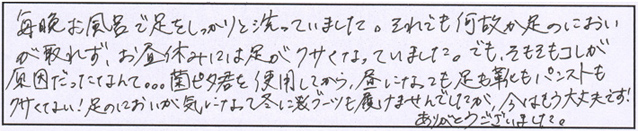 毎晩お風呂で足をしっかりと洗っていました。それでも何故か足のにおい
が取れず、お昼休みには足がクサくなっていました。でも、そもそもコレが
原因だったなんて...菌ピタ君を使用してから、昼になっても足も靴もパンストも
クサくない!足のにおいが気になって冬に ブーツも履けませんでしたが、今はもう大丈夫です!
ありがとうございました。